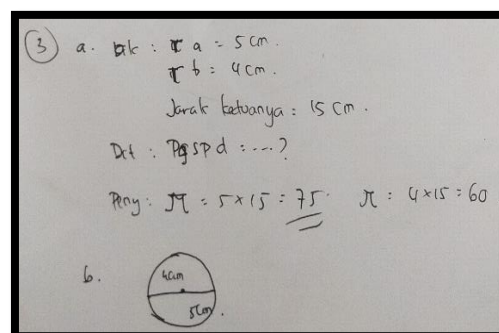 3 a. Dik : r a = 5 cm.
r b = 4 cm.
Jarak keduanya = 15 cm.
Dit : Pgspd = ...?
Peny : π = 5 × 15 = 75 π = 4 × 15 = 60
b.
4cm
5cm.